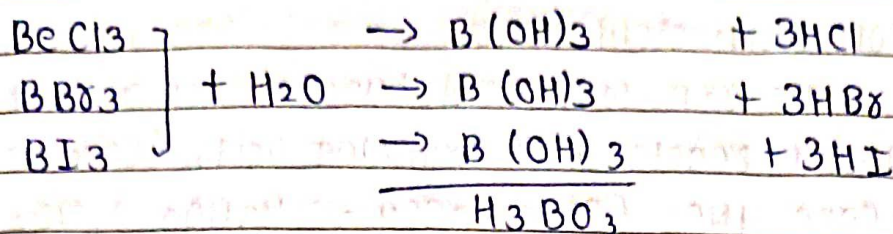 BeCl3 → B(OH)3 + 3HCl
BBr3 + H2O → B(OH)3 + 3HBr
BI3 → B(OH)3 + 3HI
H3BO3